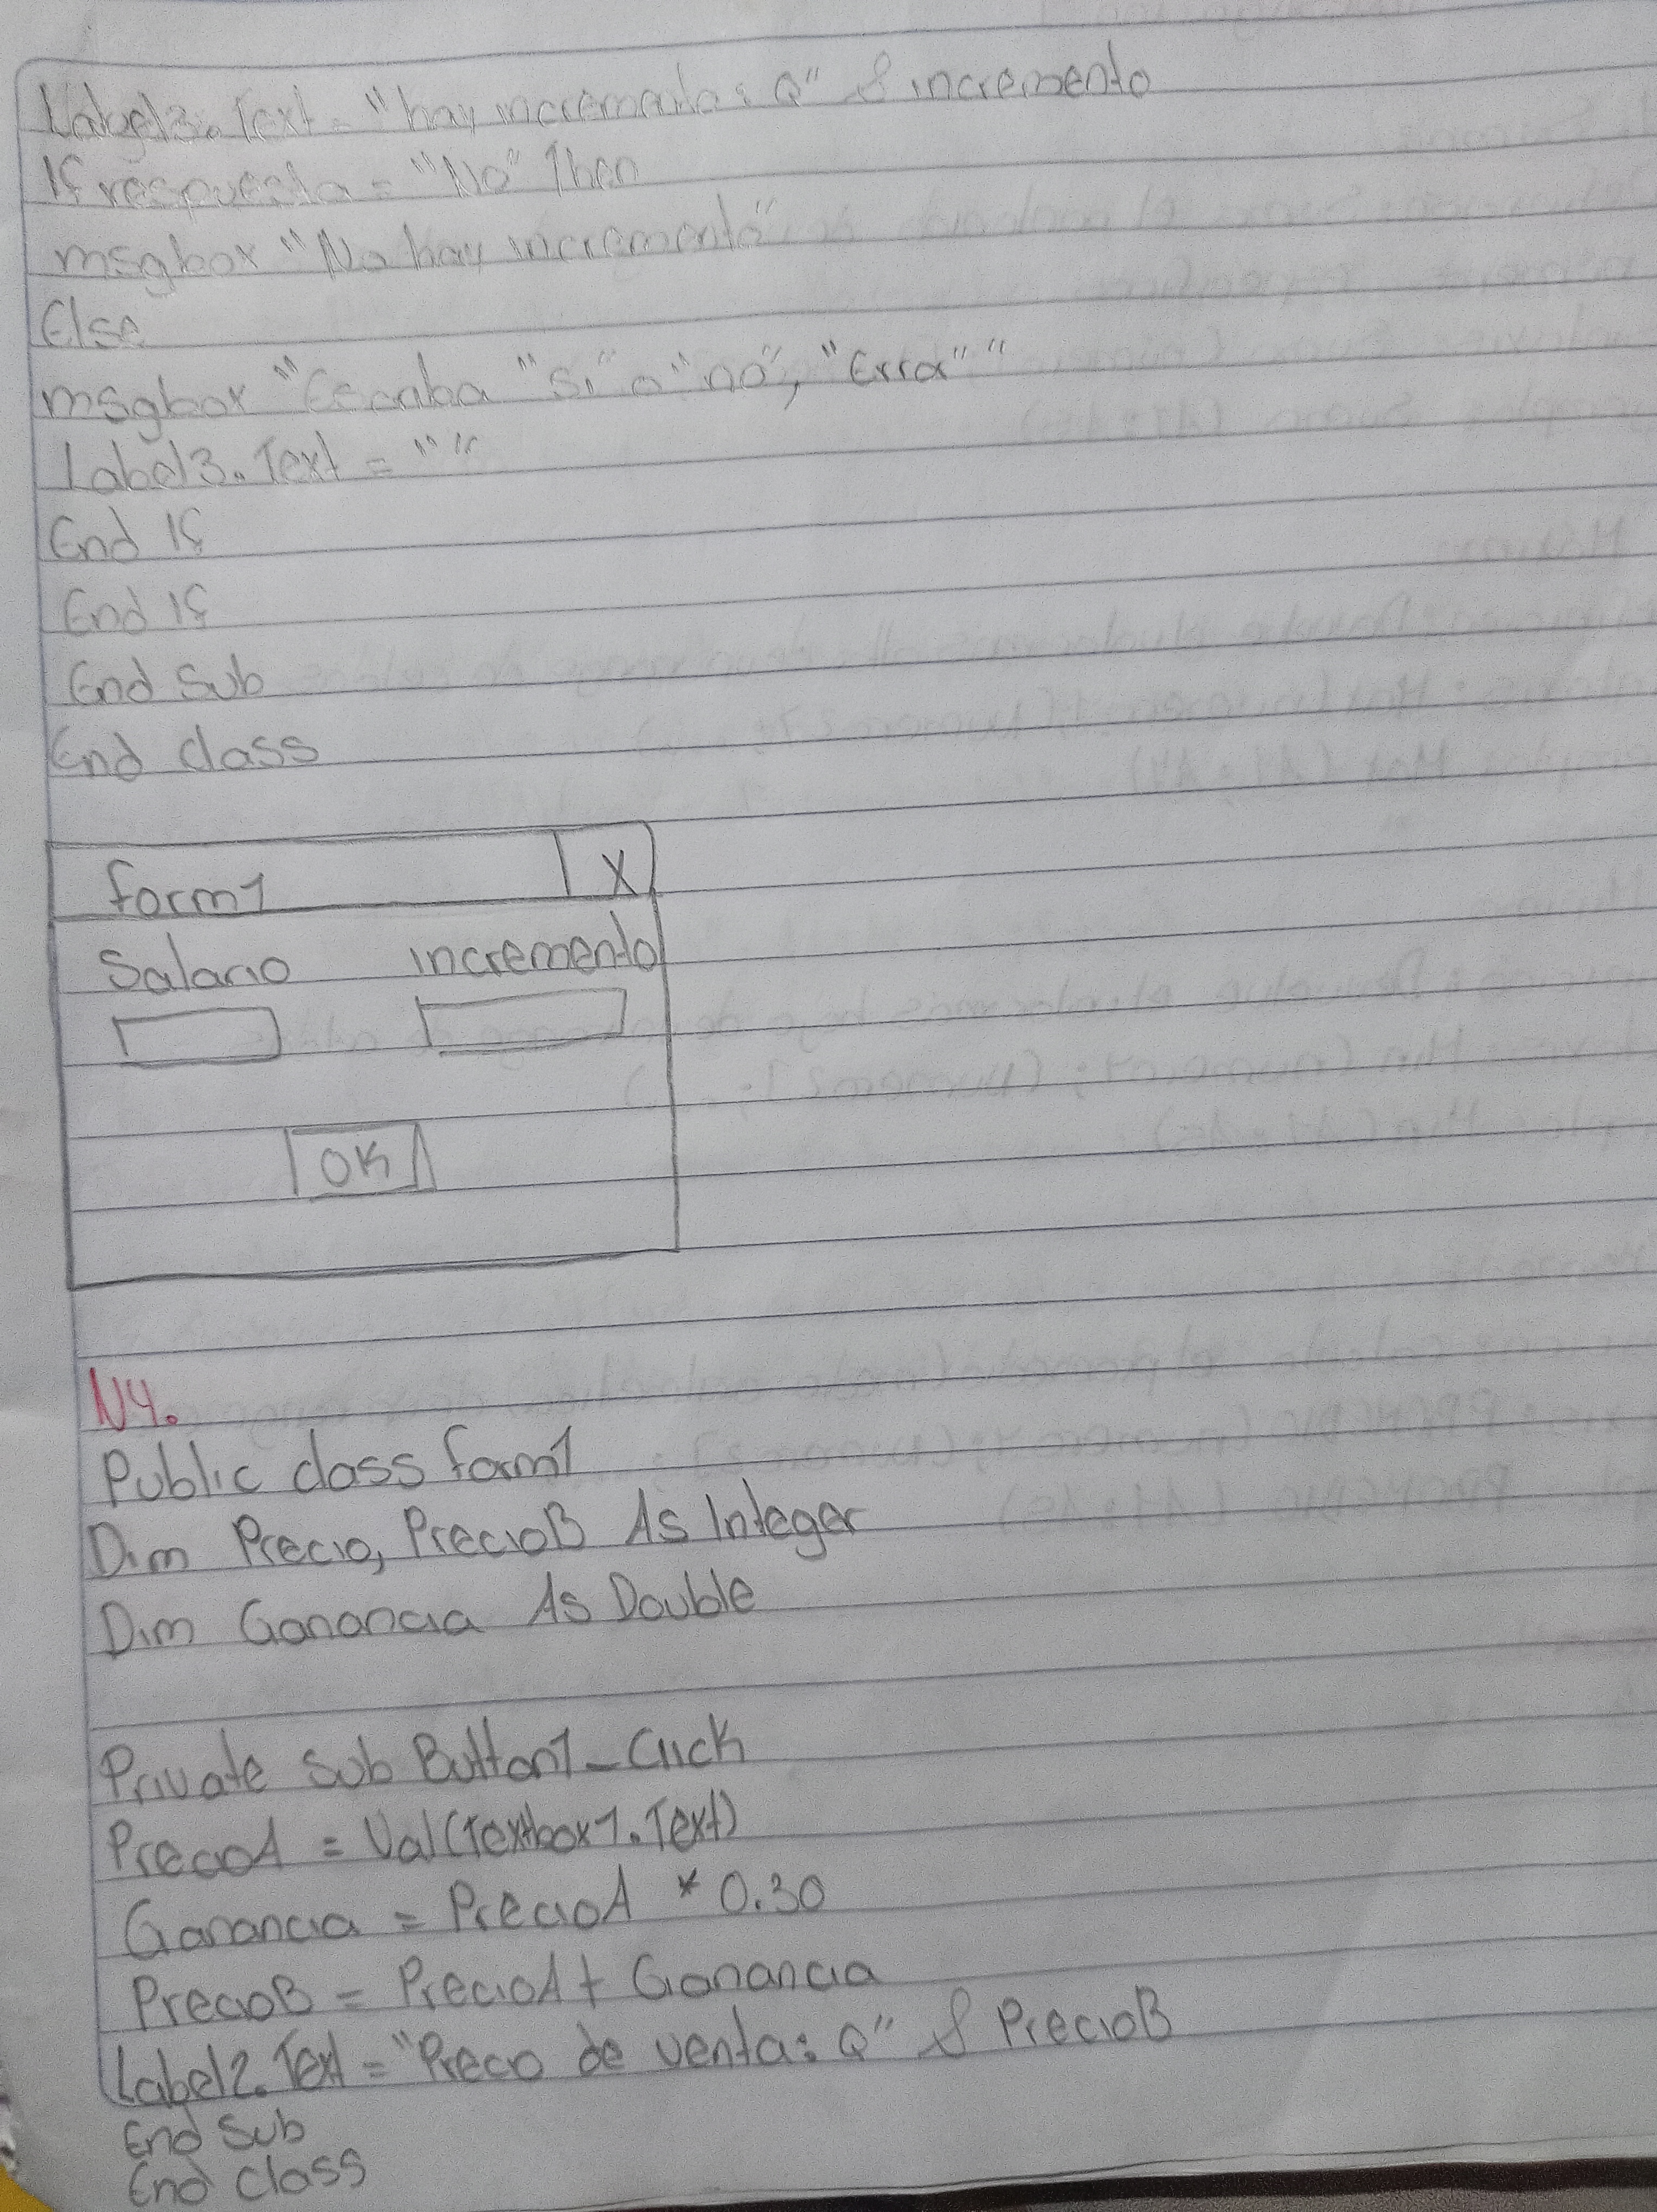 Label3.Text = "hay incremento: Q" & incremento
If respuesta = "No" Then
msgbox "No hay incremento"
Else
msgbox "Escriba "Si" o "no", "Error" "
Label3.Text = " "
End If
End If
End Sub
End class
form1 X
Salario incremento
OK
N4.
Public class form1
Dim Precio, PrecioB As Integer
Dim Ganancia As Double
Private Sub Button1_Click
PrecioA = Val(Textbox1.Text)
Ganancia = PrecioA * 0.30
PrecioB = PrecioA + Ganancia
Label2.Text = "Precio de venta: Q" & PrecioB
End Sub
End Class